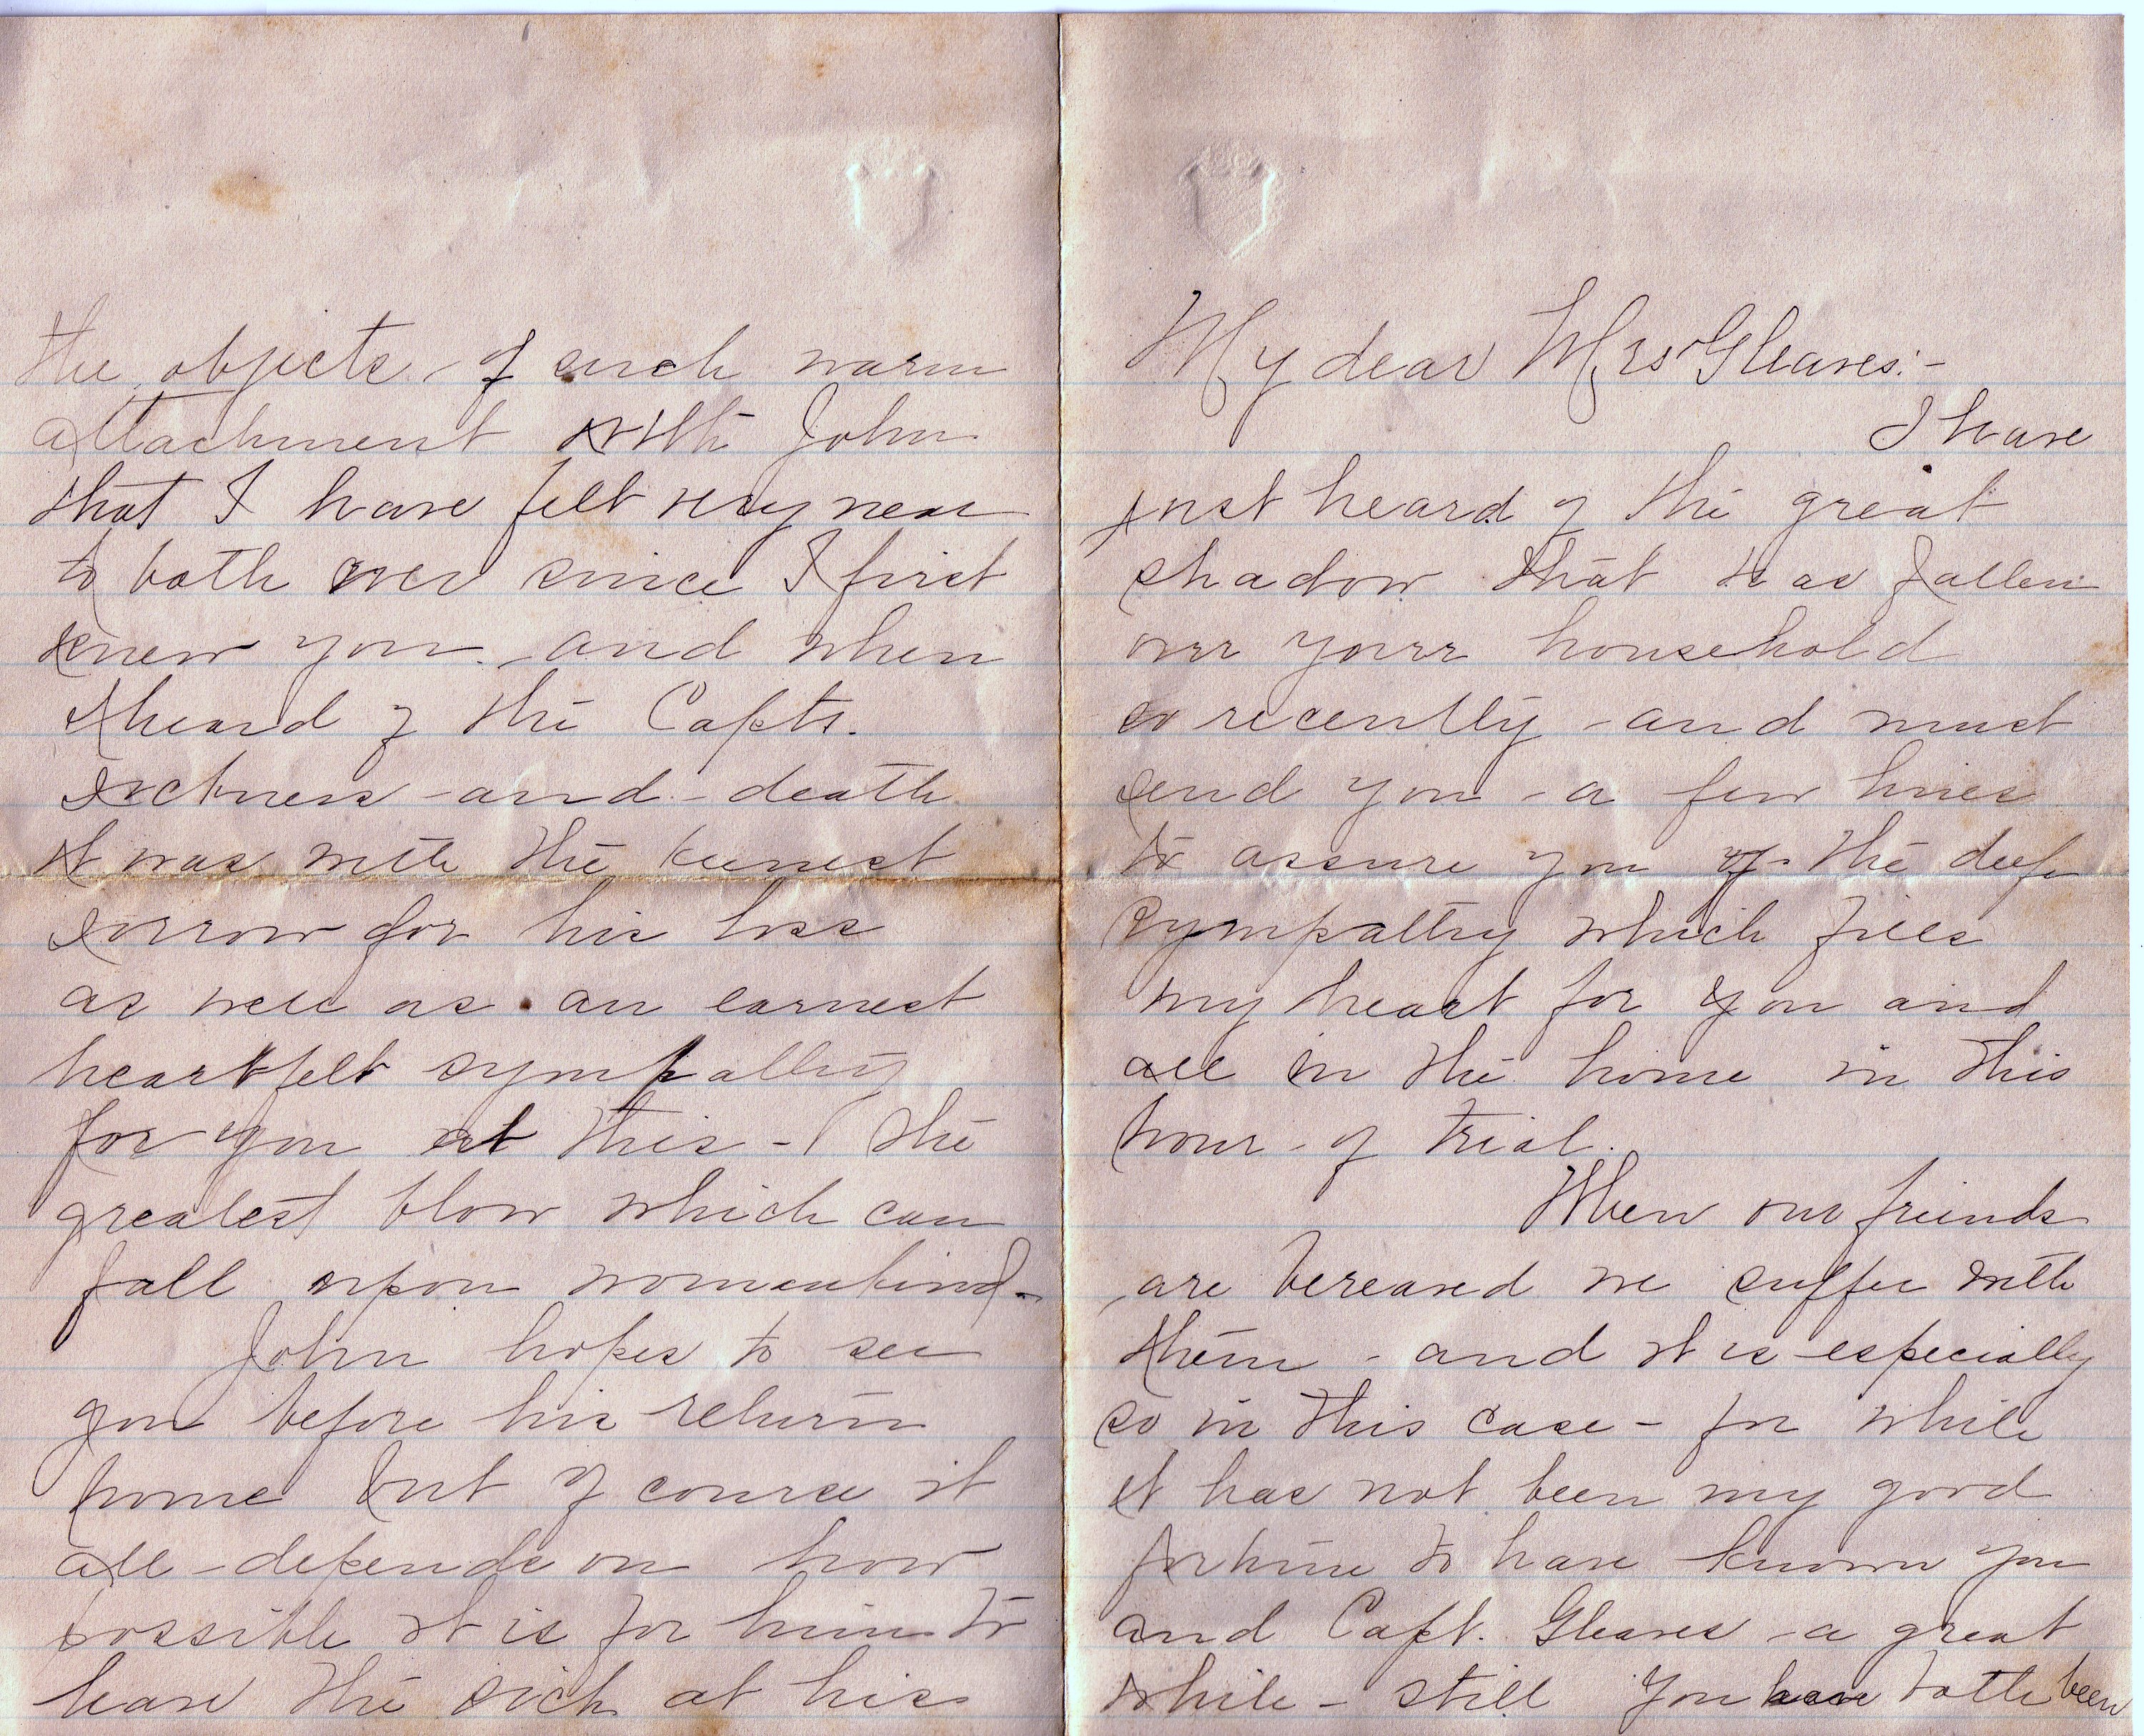 My dear Mrs Gleaves:-
I have
just heard of the great
shadow that has fallen
over your household
so recently - and must
send you - a few lines
to assure you of the deep
sympathy which fills
my heart for you and
all in the home in this
hour - of trial.
When our friends
are bereaved we suffer with
them - and it is especially
so in this case - for while
it has not been my good
fortune to have known you
and Capt. Gleaves - a great
while - still you have both been
the objects - of such warm
attachment with John
that I have felt very near
to both ever since I first
knew you - and when
I heard of the Capts.
sickness - and - death
it was with the keenest
sorrow for his loss
as well as an earnest
heartfelt sympathy
for you at this - the
greatest blow which can
fall upon womankind -
John hopes to see
you before his return
home but of course it
all - depends on how
possible it is for him to
leave the sick at his